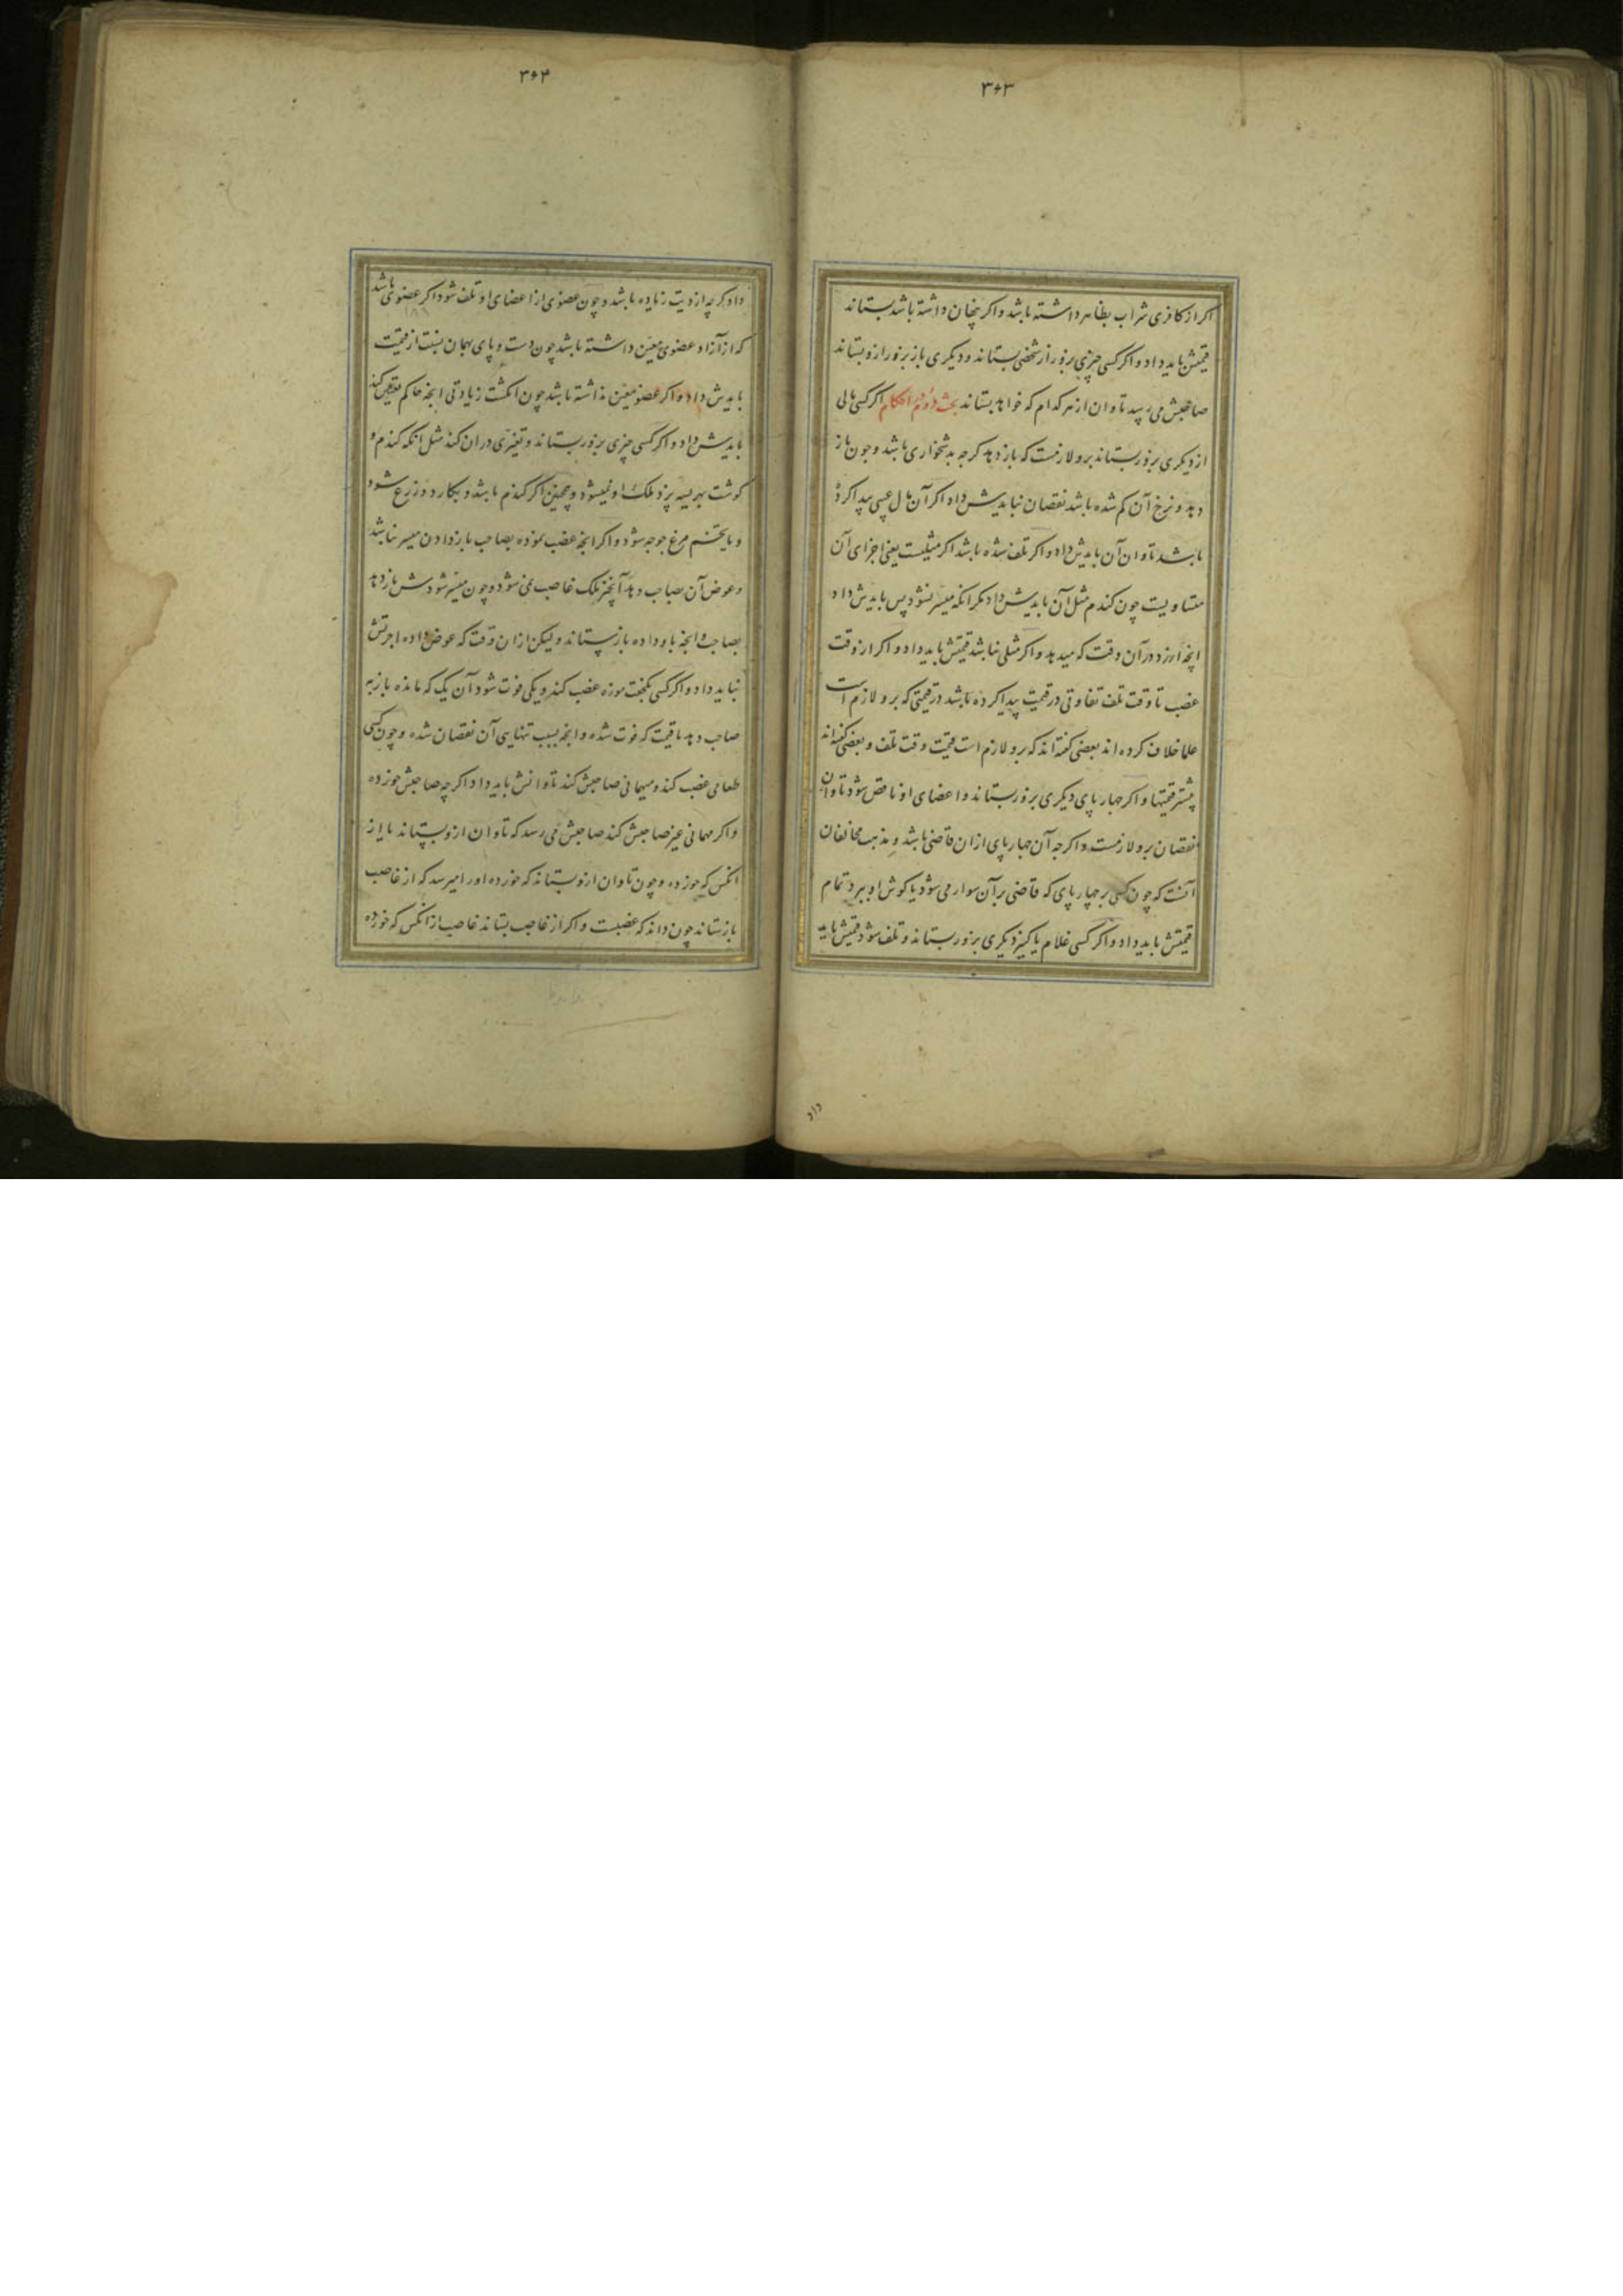 ۳۶۳
اکر از کافری شراب بظاهر داشته باشد و اکر پنهان داشته باشد بستاند
قیمتش باید داد و اکر کسی چیزی بزور از شخصی بستاند و دیکری باز بزور ازو بستاند
صاحبش می رسد تاوان از هر کدام که خواهد بستاند بحث دوم در احکام اکر کسی مالی
از دیکری بزور بستاند برو لازمست که باز دهد کرچه بدشخواری باشد و چون باز
دهد و نرخ آن کم شده باشد نقصان نبایدش داد اکر آن مال عیبی پیدا کرد
باشد تاوان آن بایدش داد و اکر تلف شده باشد اکر مثلیست یعنی اجزای آن
متساویست چون کندم مثل آن بایدش داد مکر آنکه میسر نشود پس بایدش داد
انچه ارزد در آن وقت که میدهد و اکر مثلی نباشد قیمتش باید داد و اکر از وقت
غصب تا وقت تلف تفاوتی در قیمت پیدا کرده باشد در قیمتی که برو لازم است
علما خلاف کرده اند بعضی کفته اند که برو لازم است قیمت وقت تلف و بعضی کفته اند
بیشتر قیمتها و اکر چهارپای دیکری بزور بستاند و اعضای او ناقص شود تاوان
نقصان برو لازمست و اکر چه آن چهارپای ازان قاضی باشد و مذهب مخالفان
آنست که چون کسی بر چهارپای که قاضی بر آن سوار می شود یا کوش او ببرد تمام
قیمتش باید داد و اکر کسی غلام یا کنیز دیکری بزور بستاند و تلف شود قیمتش باید
داد
۳۶۴
داد کرچه از دیت زیاده باشد و چون عضوی از اعضای او تلف شود اکر عضوی باشد
که از آزاد عضوی معین داشته باشد چون دست و پای بهمان نسبت از قیمت
بایدش داد و اکر عضو معین نداشته باشد چون انکشت زیادتی انچه حاکم تعیین کند
بایدش داد و اکر کسی چیزی بزور بستاند و تغییری در ان کند مثل انکه کندم و
کوشت بهریسه پزد ملک او نمیشود و همچنین اکر کندم باشد و بکارد و زرع شود
و یا تخم مرغ جوجه شود و اکر انچه غصب نموده بصاحب باز دادن میسر نباشد
و عوض آن بصاحب دهد آنچیز ملک غاصب نمی شود و چون میسر شودش باز دهد
بصاحب و انچه باو داده باز بستاند و لیکن ازان وقت که عوض داده اجرتش
نباید داد و اکر کسی یکجفت موزه غصب کند و یکی فوت شود آن یک که مانده باز به
صاحب دهد با قیمت که فوت شده و انچه بسبب تنهایی آن نقصان شده و چون کسی
طعامی غصب کند و میهمانی صاحبش کند تاوانش باید داد اکر چه صاحبش خورده
و اکر مهمانی غیر صاحبش کند صاحبش می رسد که تاوان ازو بستاند یا از
انکس که خورده و چون تاوان ازو بستاند که خورده او را میرسد که از غاصب
باز ستاند چون داند که غصبست و اکر از غاصب بستاند غاصب از انکس که خورده